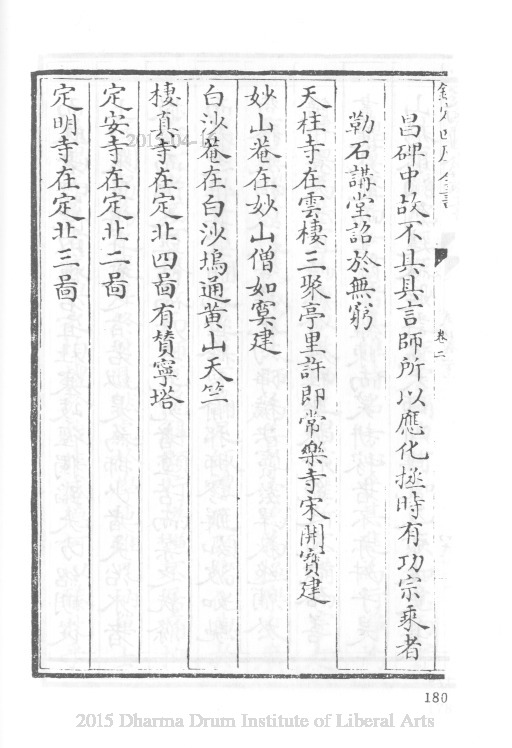 欽定四庫全書
卷二
昌碑中故不具具言師所以應化拯時有功宗乘者
勒石講堂詔於無窮
天柱寺在雲棲三聚亭里許即常樂寺宋開寶建
妙山菴在妙山僧如寞建
白沙菴在白沙塢通黄山天竺
棲真寺在定北四啚有賛寧塔
定安寺在定北二啚
定明寺在定北三啚
180
2015 Dharma Drum Institute of Liberal Arts